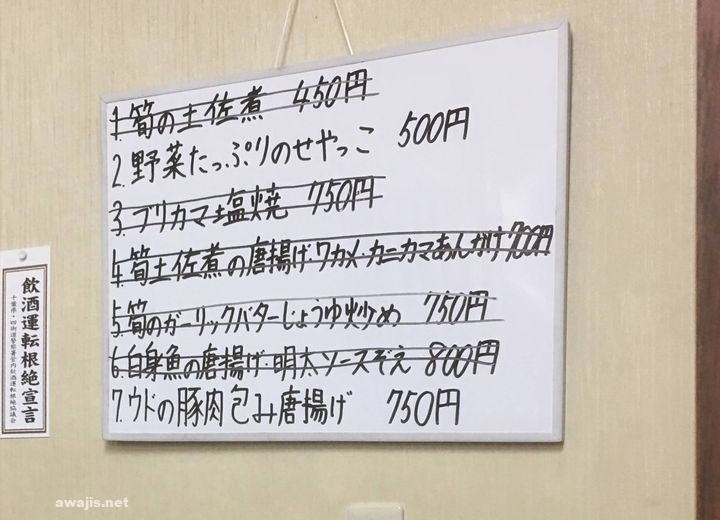 1. 筍の土佐煮 450円
2. 野菜たっぷりのせやっこ 500円
3. ブリカマ塩焼 750円
4. 筍土佐煮の唐揚げ・ワカメ・カニカマあんかけ 700円
5. 筍のガーリックバターじょうゆ炒め 750円
6. 白身魚の唐揚げ・明太ソースぞえ 800円
7. ウドの豚肉包み唐揚げ 750円
飲酒運転根絶宣言
千葉県・四街道警察署管内飲酒運転根絶協議会
awajis.net